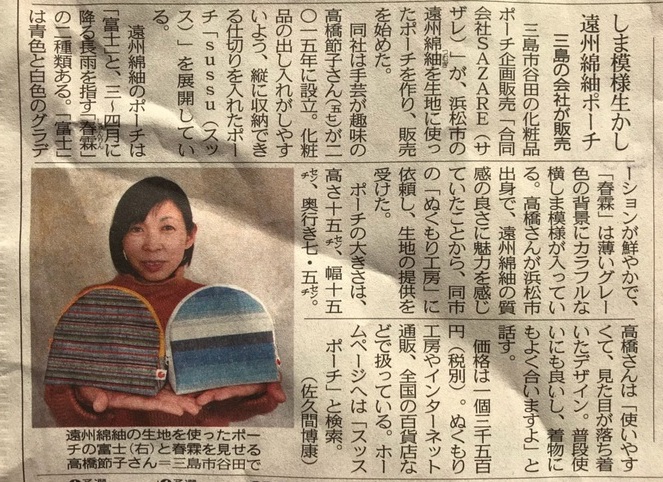 しま模様生かし
遠州綿紬ポーチ
三島の会社が販売
三島市谷田の化粧品
ポーチ企画販売「合同
会社SAZARE(サ
ザレ)」が、浜松市の
遠州綿紬を生地に使っ
たポーチを作り、販売
を始めた。
同社は手芸が趣味の
高橋節子さん()が二
〇一五年に設立。化粧
品の出し入れがしやす
いよう、縦に収納でき
る仕切りを入れたポー
チ「sussu(スッ
ス)」を展開してい
る。
遠州綿紬のポーチは
「富士」と、三〜四月に
降る長雨を指す「春霖」
の二種類ある。「富士」
は青色と白色のグラデ
ーションが鮮やかで、
「春霖」は薄いグレー
色の背景にカラフルな
横しま模様が入ってい
る。高橋さんが浜松市
出身で、遠州綿紬の質
感の良さに魅力を感じ
ていたことから、同市
の「ぬくもり工房」に
依頼し、生地の提供を
受けた。
ポーチの大きさは、
高さ十五センチ、幅十五
センチ、奥行き七・五センチ。
高橋さんは「使いやす
くて、見た目が落ち着
いたデザイン。普段使
いにも良いし、着物に
もよく合いますよ」と
話す。
価格は一個三千五百
円(税別)。ぬくもり
工房やインターネット
通販、全国の百貨店な
どで扱っている。ホー
ムページへは「スッス
ポーチ」と検索。
(佐久間博康)
遠州綿紬の生地を使ったポー
チの富士(右)と春霖を見せる
高橋節子さん=三島市谷田で